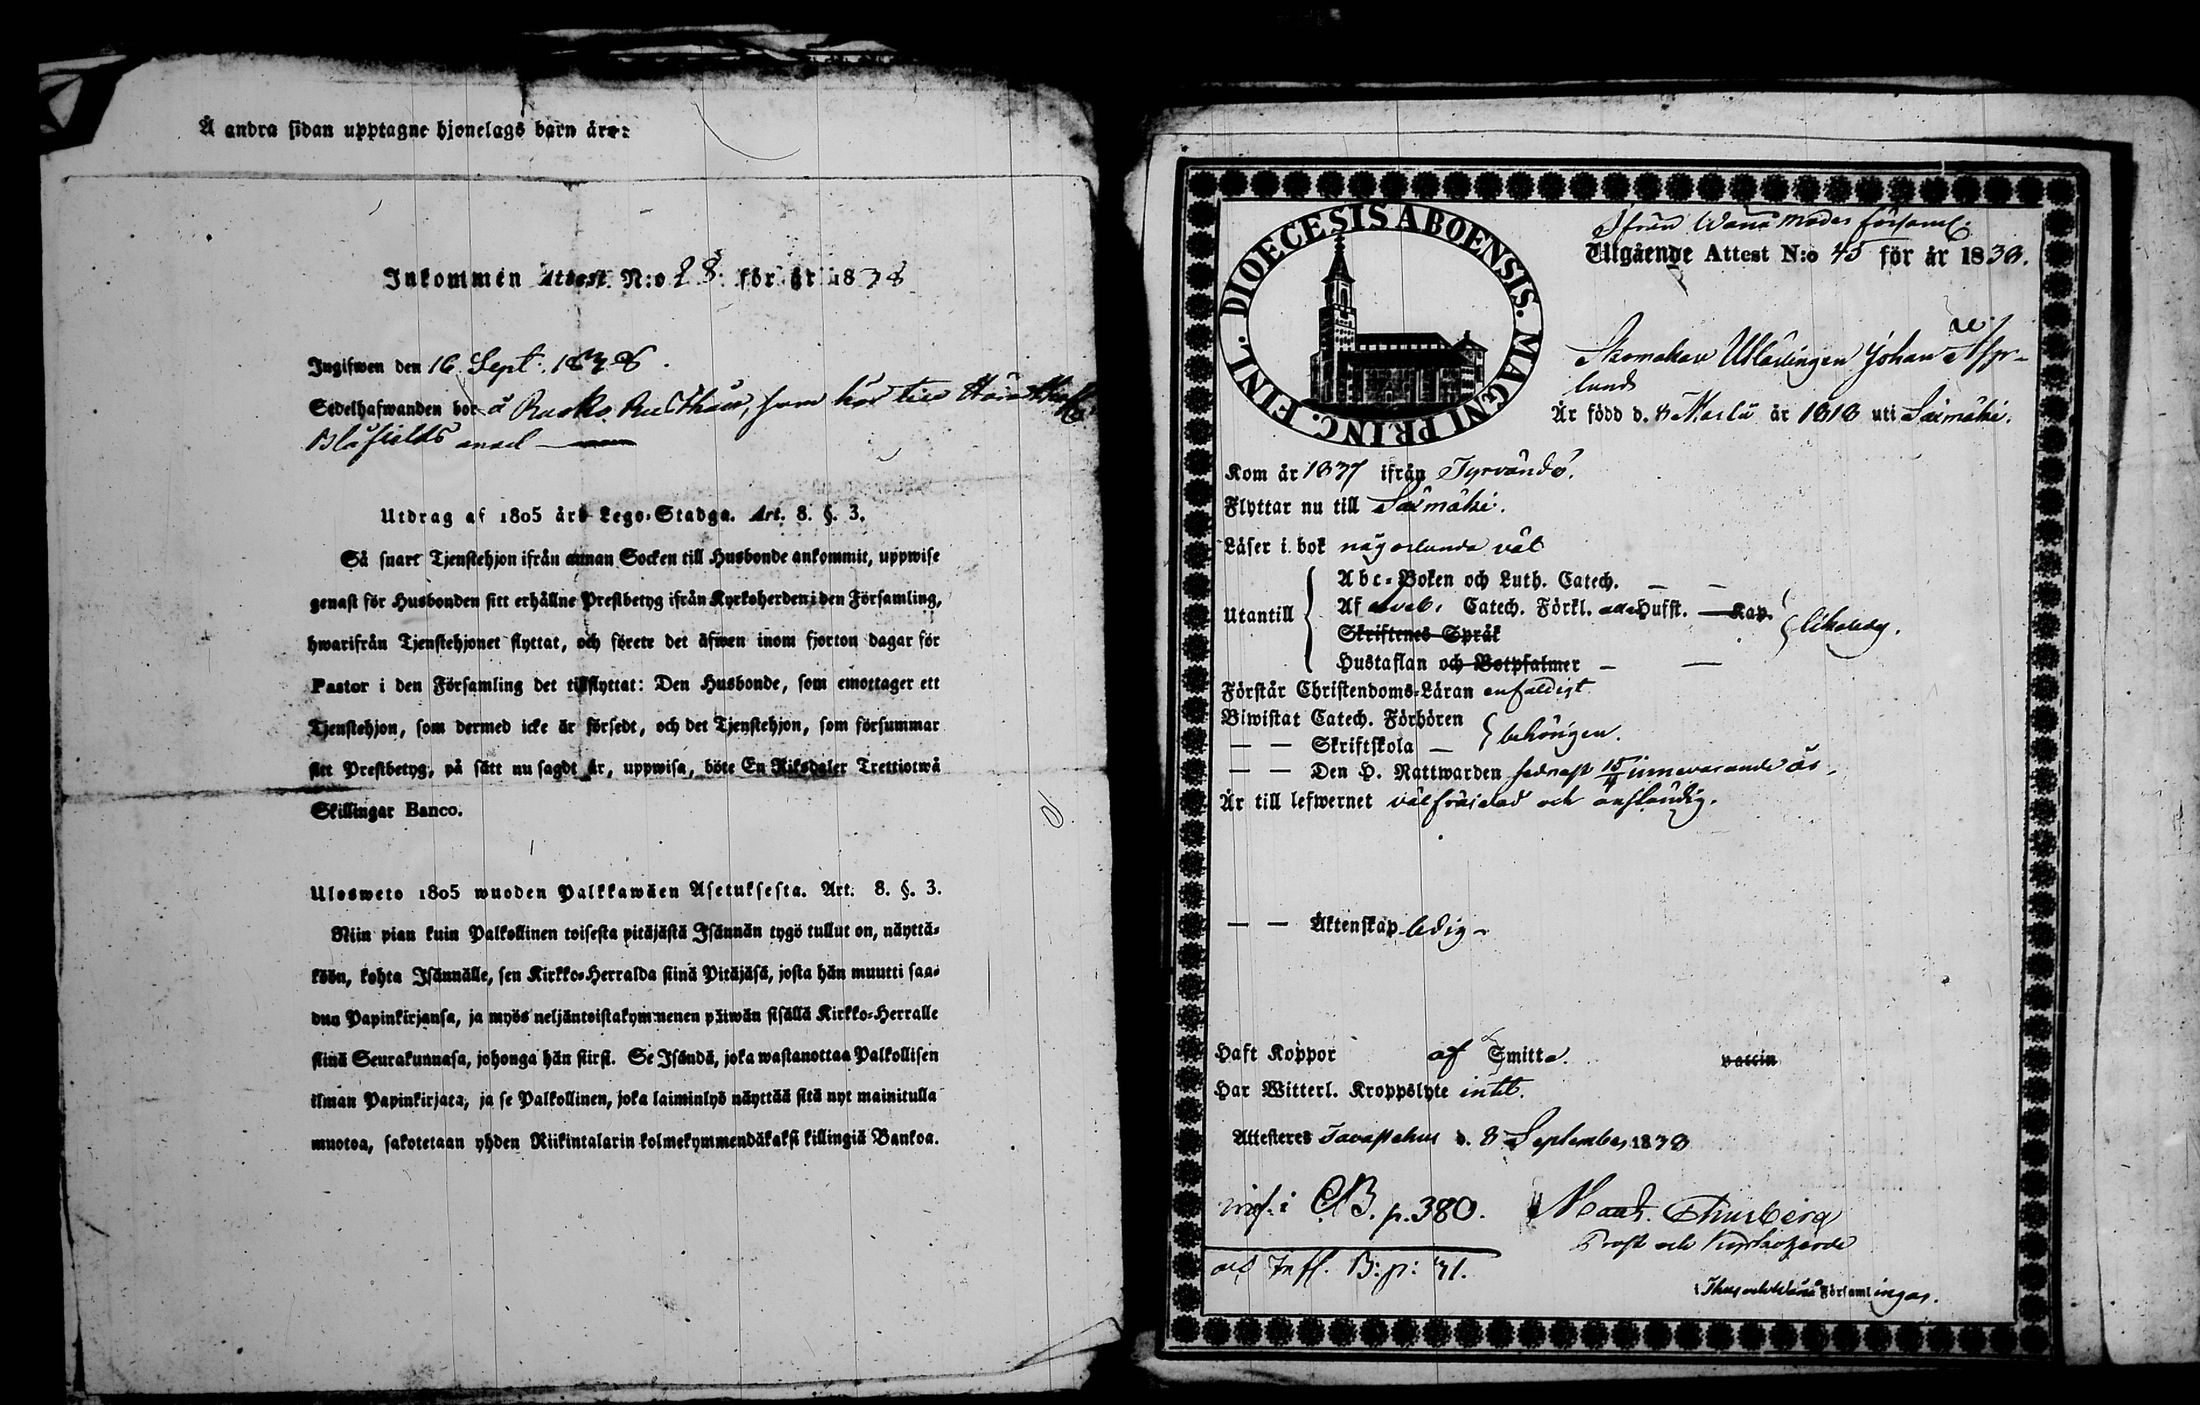 Å andra sidan upptagne hjonelags barn äro:
Inkommen Attest. N:o 28. för år 1838
Ingifwen den 16 Sept. 1838.
Sedelhafwanden bor å Rusthåll, som hör till
Blåfields
Utdrag af 1805 års Lego-Stadga. Art. 8. §. 3.
Så snart Tjenstehjon ifrån annan Socken till Husbonde ankommit, uppwise
genast för Husbonden sitt erhållne Prestbetyg ifrån Kyrkoherden i den Församling,
hwarifrån Tjenstehjonet flyttat, och förete det äfwen inom fjorton dagar för
Pastor i den Församling det tillflyttat: Den Husbonde, som emottager ett
Tjenstehjon, som dermed icke är försedt, och det Tjenstehjon, som försummar
sitt Prestbetyg, på sätt nu sagdt är, uppwisa, böte En Riksdaler Trettiotwå
Skillingar Banco.
Ulosweto 1805 wuoden Palkkawäen Asetuksesta. Art. 8. §. 3.
Niin pian kuin Palkollinen toisesta pitäjästä Isännän tygö tullut on, näyttä-
köön, kohta Isännälle, sen Kirkko-Herralda siinä Pitäjäsä, josta hän muutti saa-
dun Papinkirjansa, ja myös neljäntoistakymmenen päiwän sisällä Kirkko-Herralle
siinä Seurakunnasa, johonga hän siirsi. Se Isändä, joka wastanottaa Palkollisen
ilman Papinkirjata, ja se Palkollinen, joka laiminlyö näyttää sitä nyt mainitulla
muotoa, sakotetaan yhden Riikintalarin kolmekymmendäkaksi killingiä Bankoa.
DIOECESIS ABOENSIS. MAGNI PRINC. FINL.
Ifrån Wånå Moder församl
Utgående Attest N:o 45 för år 1838.
Skomakare Utlärlingen Johan Asp-
lund
Är född d. 8 Martii år 1818 uti Säxmäki.
Kom år 1837 ifrån Tyrvändö.
Flyttar nu till Säxmäki.
Läser i bok någorlunda väl
Utantill
Abc-Boken och Luth. Catech. — —
Af Catech. Förkl. Hufst. Kap.
Skriftenes Språk
Hustaflan och Botpsalmer — —
likaledes.
Förstår Christendoms-Läran enfaldigt
Biwistat Catech. Förhören
— — Skriftskola — behörigen.
— — Den H. Nattwarden sednast 15/4 innevarande år.
Är till lefwernet välfräjdad och anständig.
— — Äktenskap ledig
Haft Koppor af Smitta. vaccin
Har Witterl. Kroppslyte intet.
Attesteres Tavastehus d. 8 September 1838
inf. i CB. p. 380.
Prost och Kyrkoherde
Infl. B: p: 31.
i Thus och Wånå Församlingar.